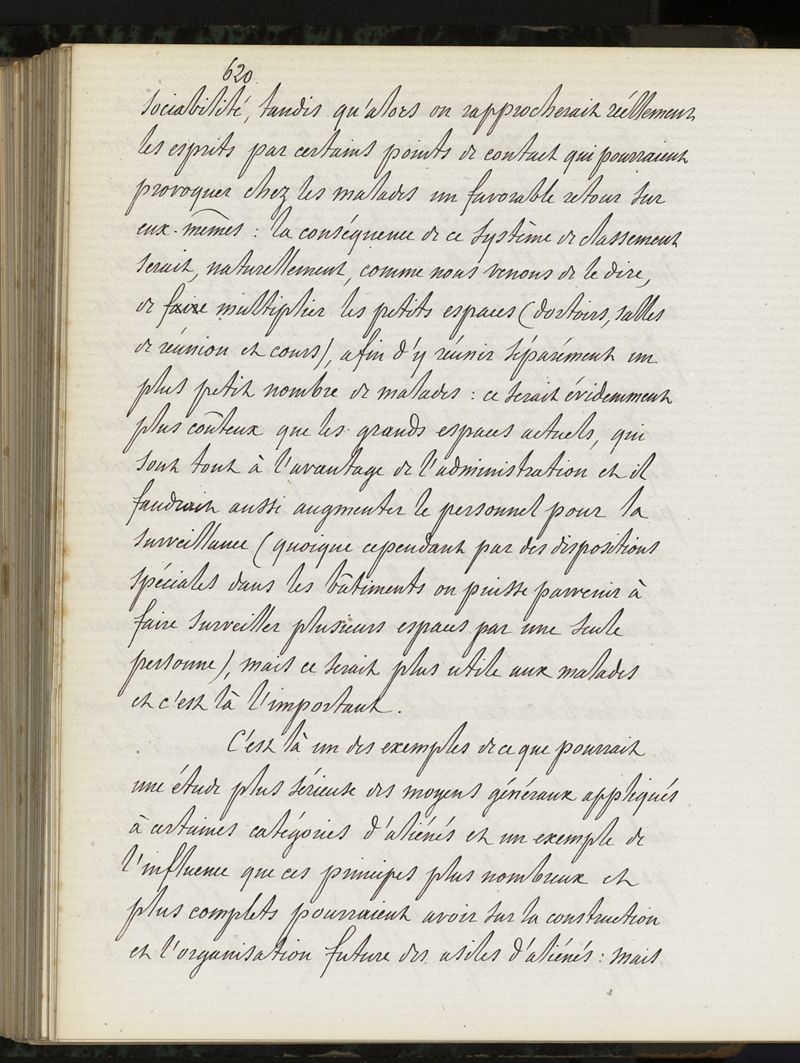 620
sociabilité, tandis qu'alors on rapprocherait réellement
les esprits par certains points de contact qui pourraient
provoquer chez les malades un favorable retour sur
eux-mêmes : la conséquence de ce système de classement
serait, naturellement, comme nous venons de le dire,
de faire multiplier les petits espaces (dortoirs, salles
de réunion et cours), afin d'y réunir séparément un
plus petit nombre de malades : ce serait évidemment
plus coûteux que les grands espaces actuels, qui
sont tout à l'avantage de l'administration et il
faudrait aussi augmenter le personnel pour la
surveillance (quoique cependant par des dispositions
spéciales dans les bâtiments on puisse parvenir à
faire surveiller plusieurs espaces par une seule
personne), mais ce serait plus utile aux malades
et c'est là l'important.
C'est là un des exemples de ce que pourrait
une étude plus sérieuse des moyens généraux appliqués
à certaines catégories d'aliénés et un exemple de
l'influence que ces principes plus nombreux et
plus complets pourraient avoir sur la construction
et l'organisation future des asiles d'aliénés : mais